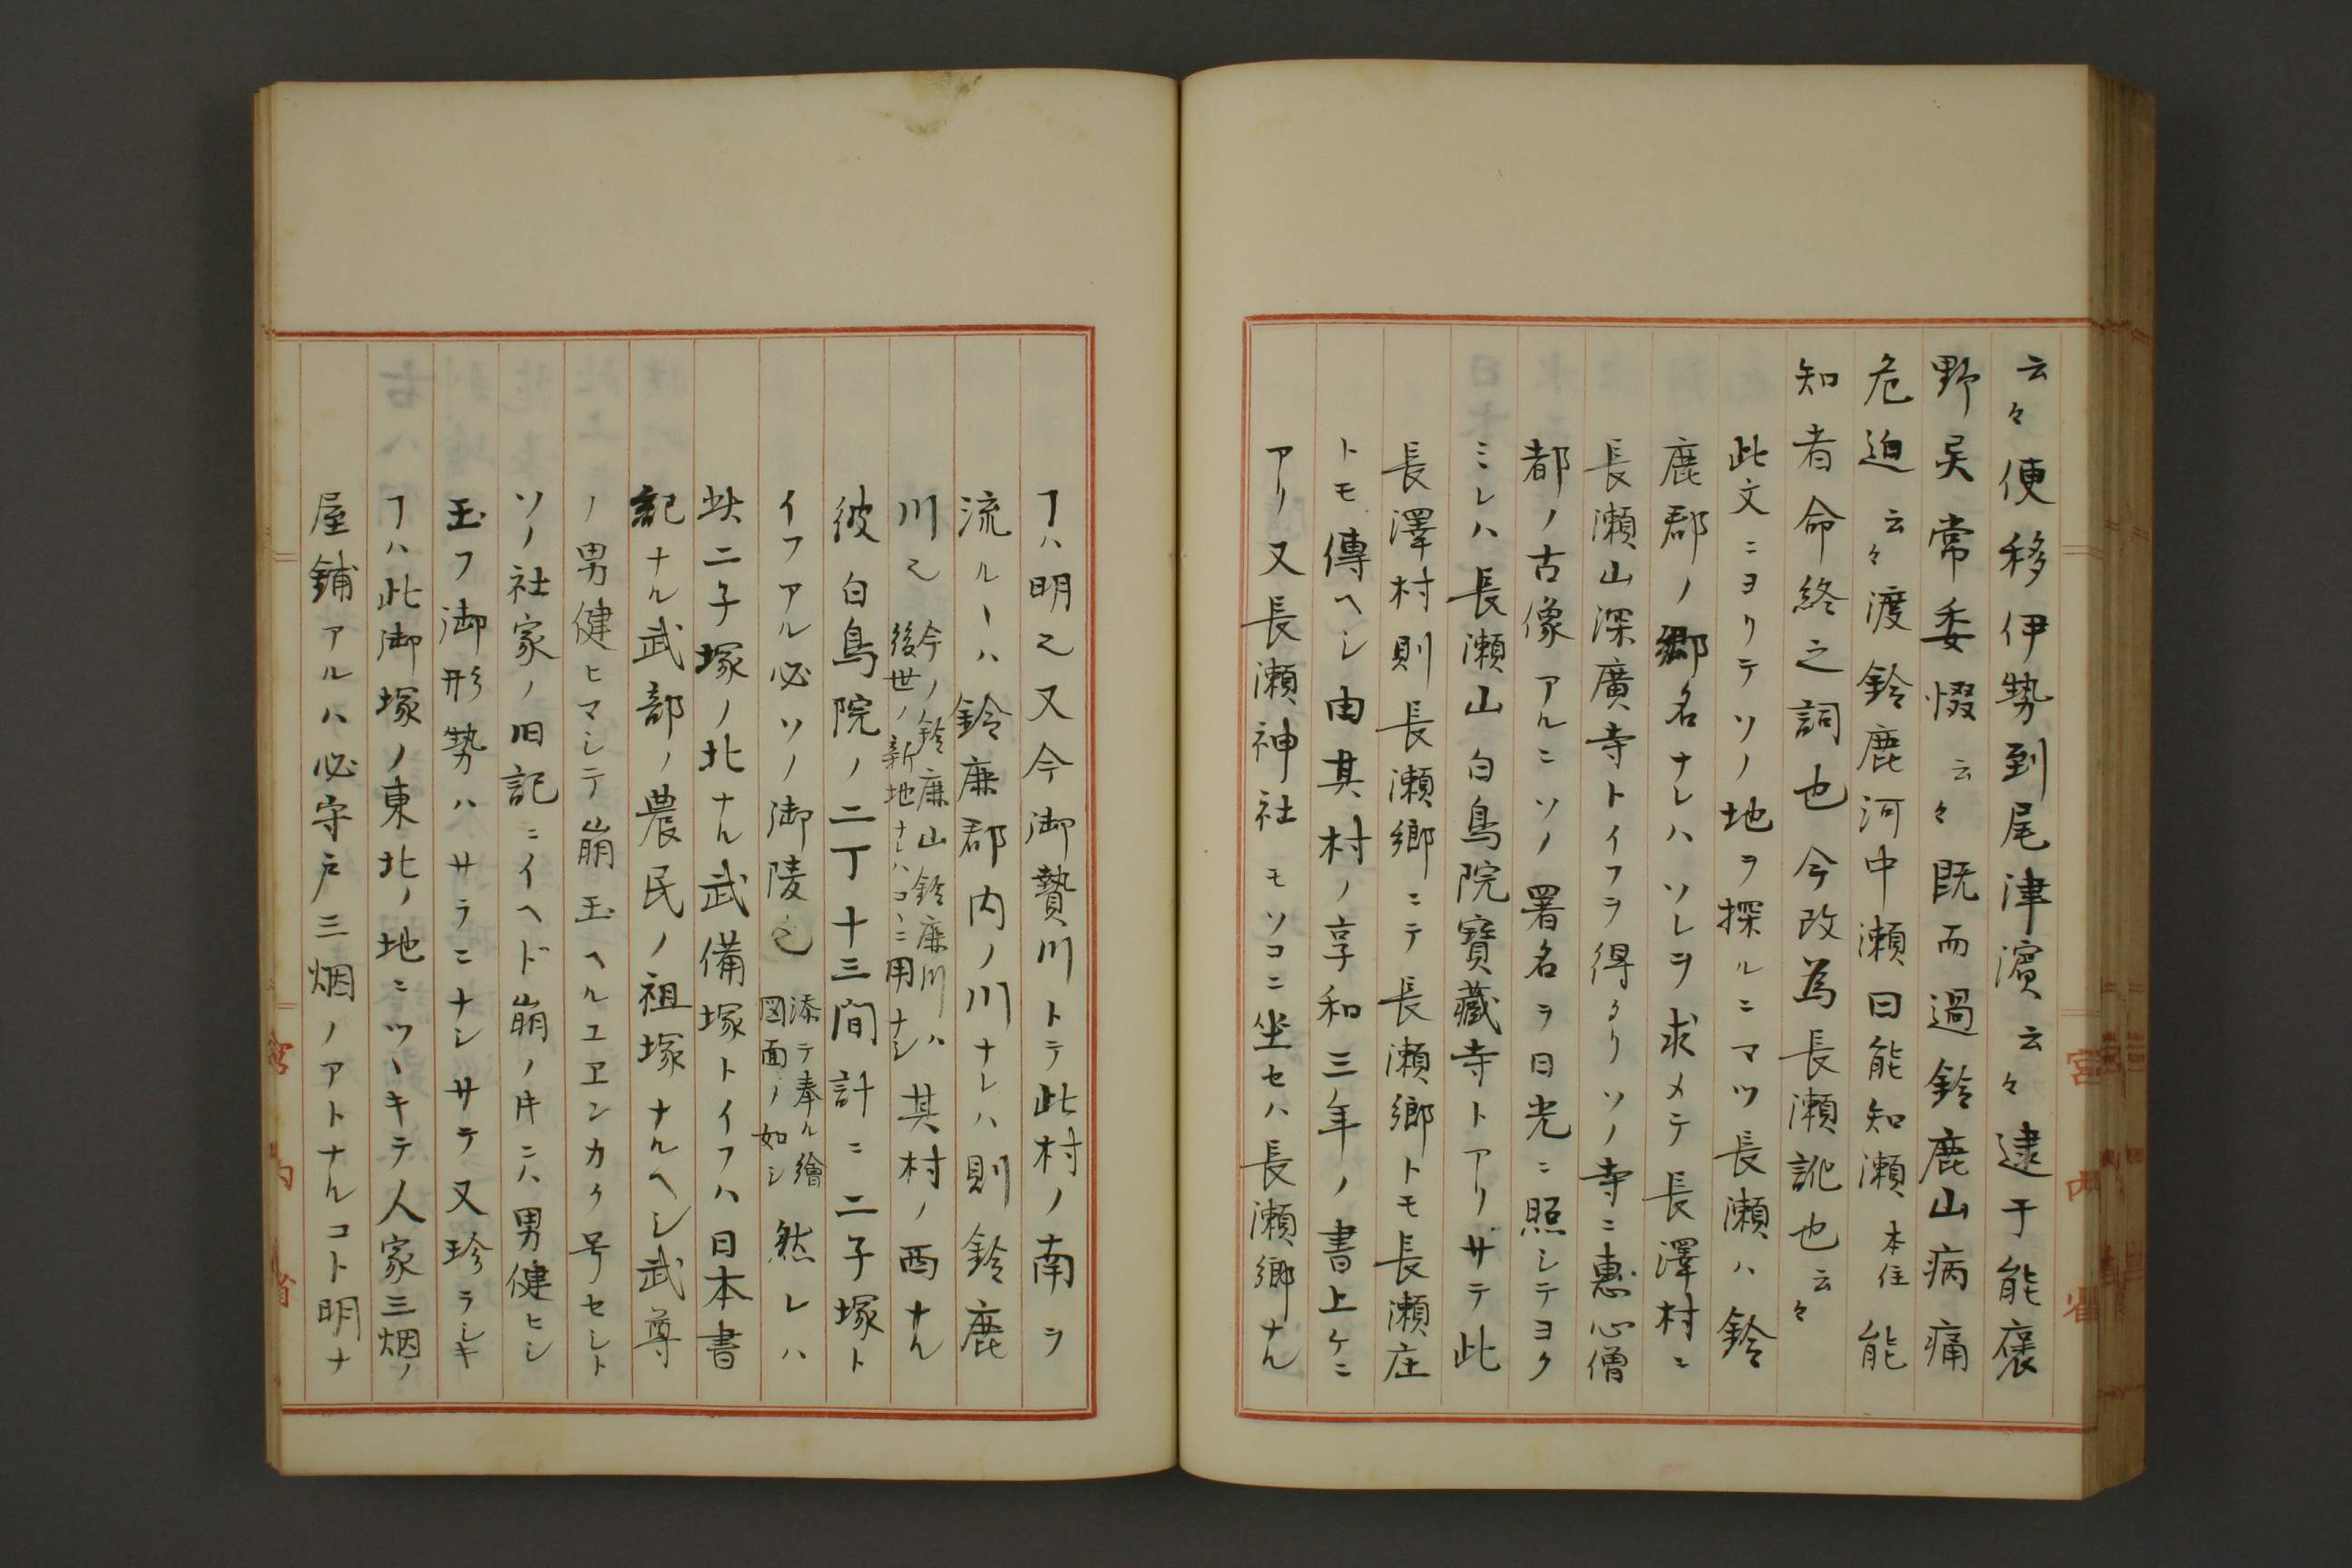 云々便移伊勢到尾津濵云々逮于能褒
野㫖常委惙云々既而過鈴鹿山病痛
危迫云々渡鈴鹿河中瀬曰能知瀬本住能
知者命終之詞也今改為長瀬訛也云々
此文ニヨリテソノ地ヲ探ルニマツ長瀬ハ鈴
鹿郡ノ郷名ナレハソレヲ求メテ長澤村ニ
長瀬山深廣寺トイフヲ得タリソノ寺ニ惠心僧
都ノ古像アルニソノ署名ヲ日光ニ照シテヨク
ミレハ長瀬山白鳥院寳藏寺トアリサテ此
長澤村則長瀬郷ニテ長瀬郷トモ長瀬庄
トモ傳ヘシ由其村ノ享和三年ノ書上ケニ
アリ又長瀬神社モソコニ坐セハ長瀬郷ナル
ヿハ明也又今御贄川トテ此村ノ南ヲ
流ルヽハ鈴鹿郡内ノ川ナレハ則鈴鹿
川也今ノ鈴鹿山鈴鹿川ハ
後世ノ新地ナレハコヽニ用ナシ其村ノ西ナル
彼白鳥院ノ二丁十三間計ニ二子塚ト
イフアル必ソノ御陵也添テ奉ル繪
図面ノ如シ然レハ
此二子塚ノ北ナル武備塚トイフハ日本書
記ナル武部ノ農民ノ祖塚ナルヘシ武尊
ノ男健ヒマシテ崩玉ヘルユヱシカク号セシト
ソノ社家ノ旧記ニイヘド崩ノ䏻ニハ男健ヒシ
玉フ御形勢ハサラニナシサテ又珍ラシキ
ヿハ此御塚ノ東北ノ地ニツヽキテ人家三烟ノ
屋鋪アルハ必守戸三烟ノアトナルコト明ナ
宮内省